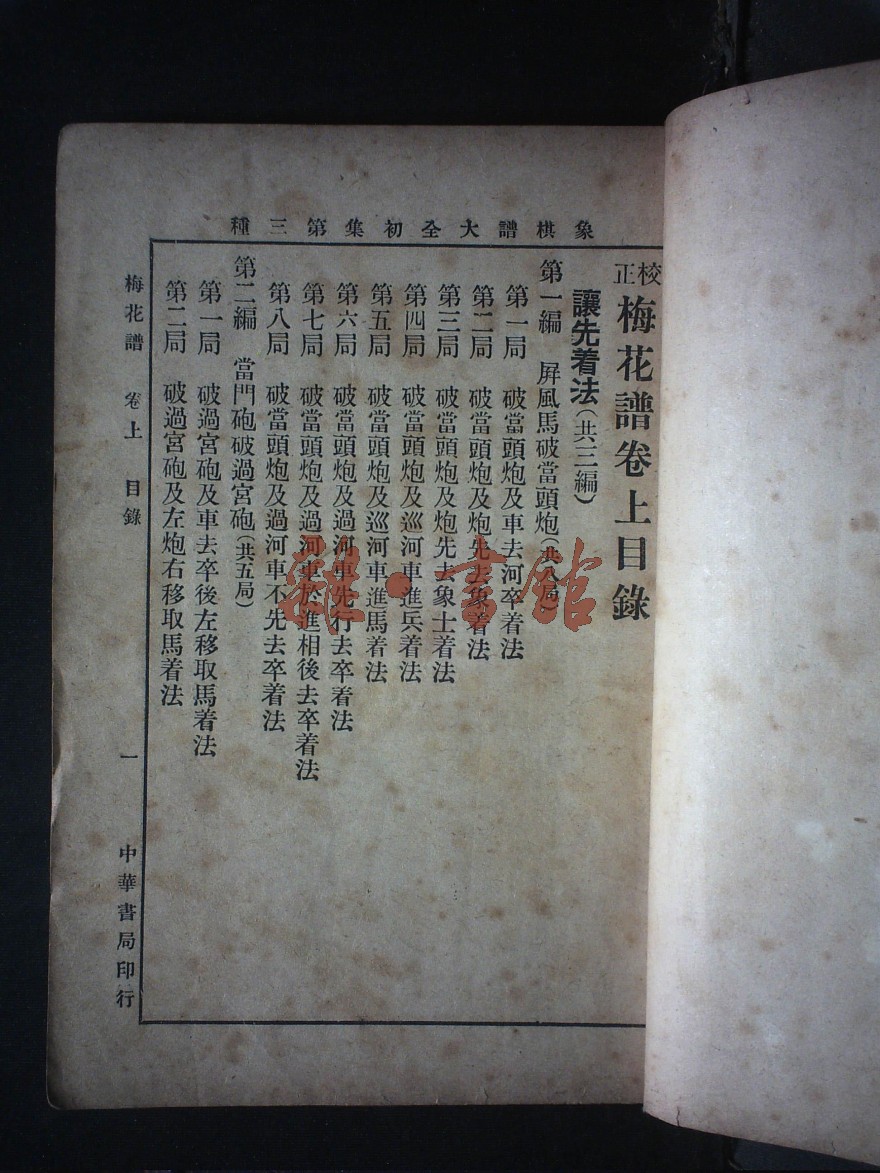 象棋譜大全初集第三種
校正梅花譜卷上目錄
讓先着法(共三編)
第一編 屏風馬破當頭炮(共八局)
第一局 破當頭炮及車去河卒着法
第二局 破當頭炮及炮先去象着法
第三局 破當頭炮及炮先去象士着法
第四局 破當頭炮及巡河車進兵着法
第五局 破當頭炮及巡河車進馬着法
第六局 破當頭炮及過河車先行去卒着法
第七局 破當頭炮及過河車於進相後去卒着法
第八局 破當頭炮及過河車不先去卒着法
第二編 當門砲破過宮砲(共五局)
第一局 破過宮砲及車去卒後左移取馬着法
第二局 破過宮砲及左炮右移取馬着法
梅花譜 卷上 目錄 一 中華書局印行
雜·書館